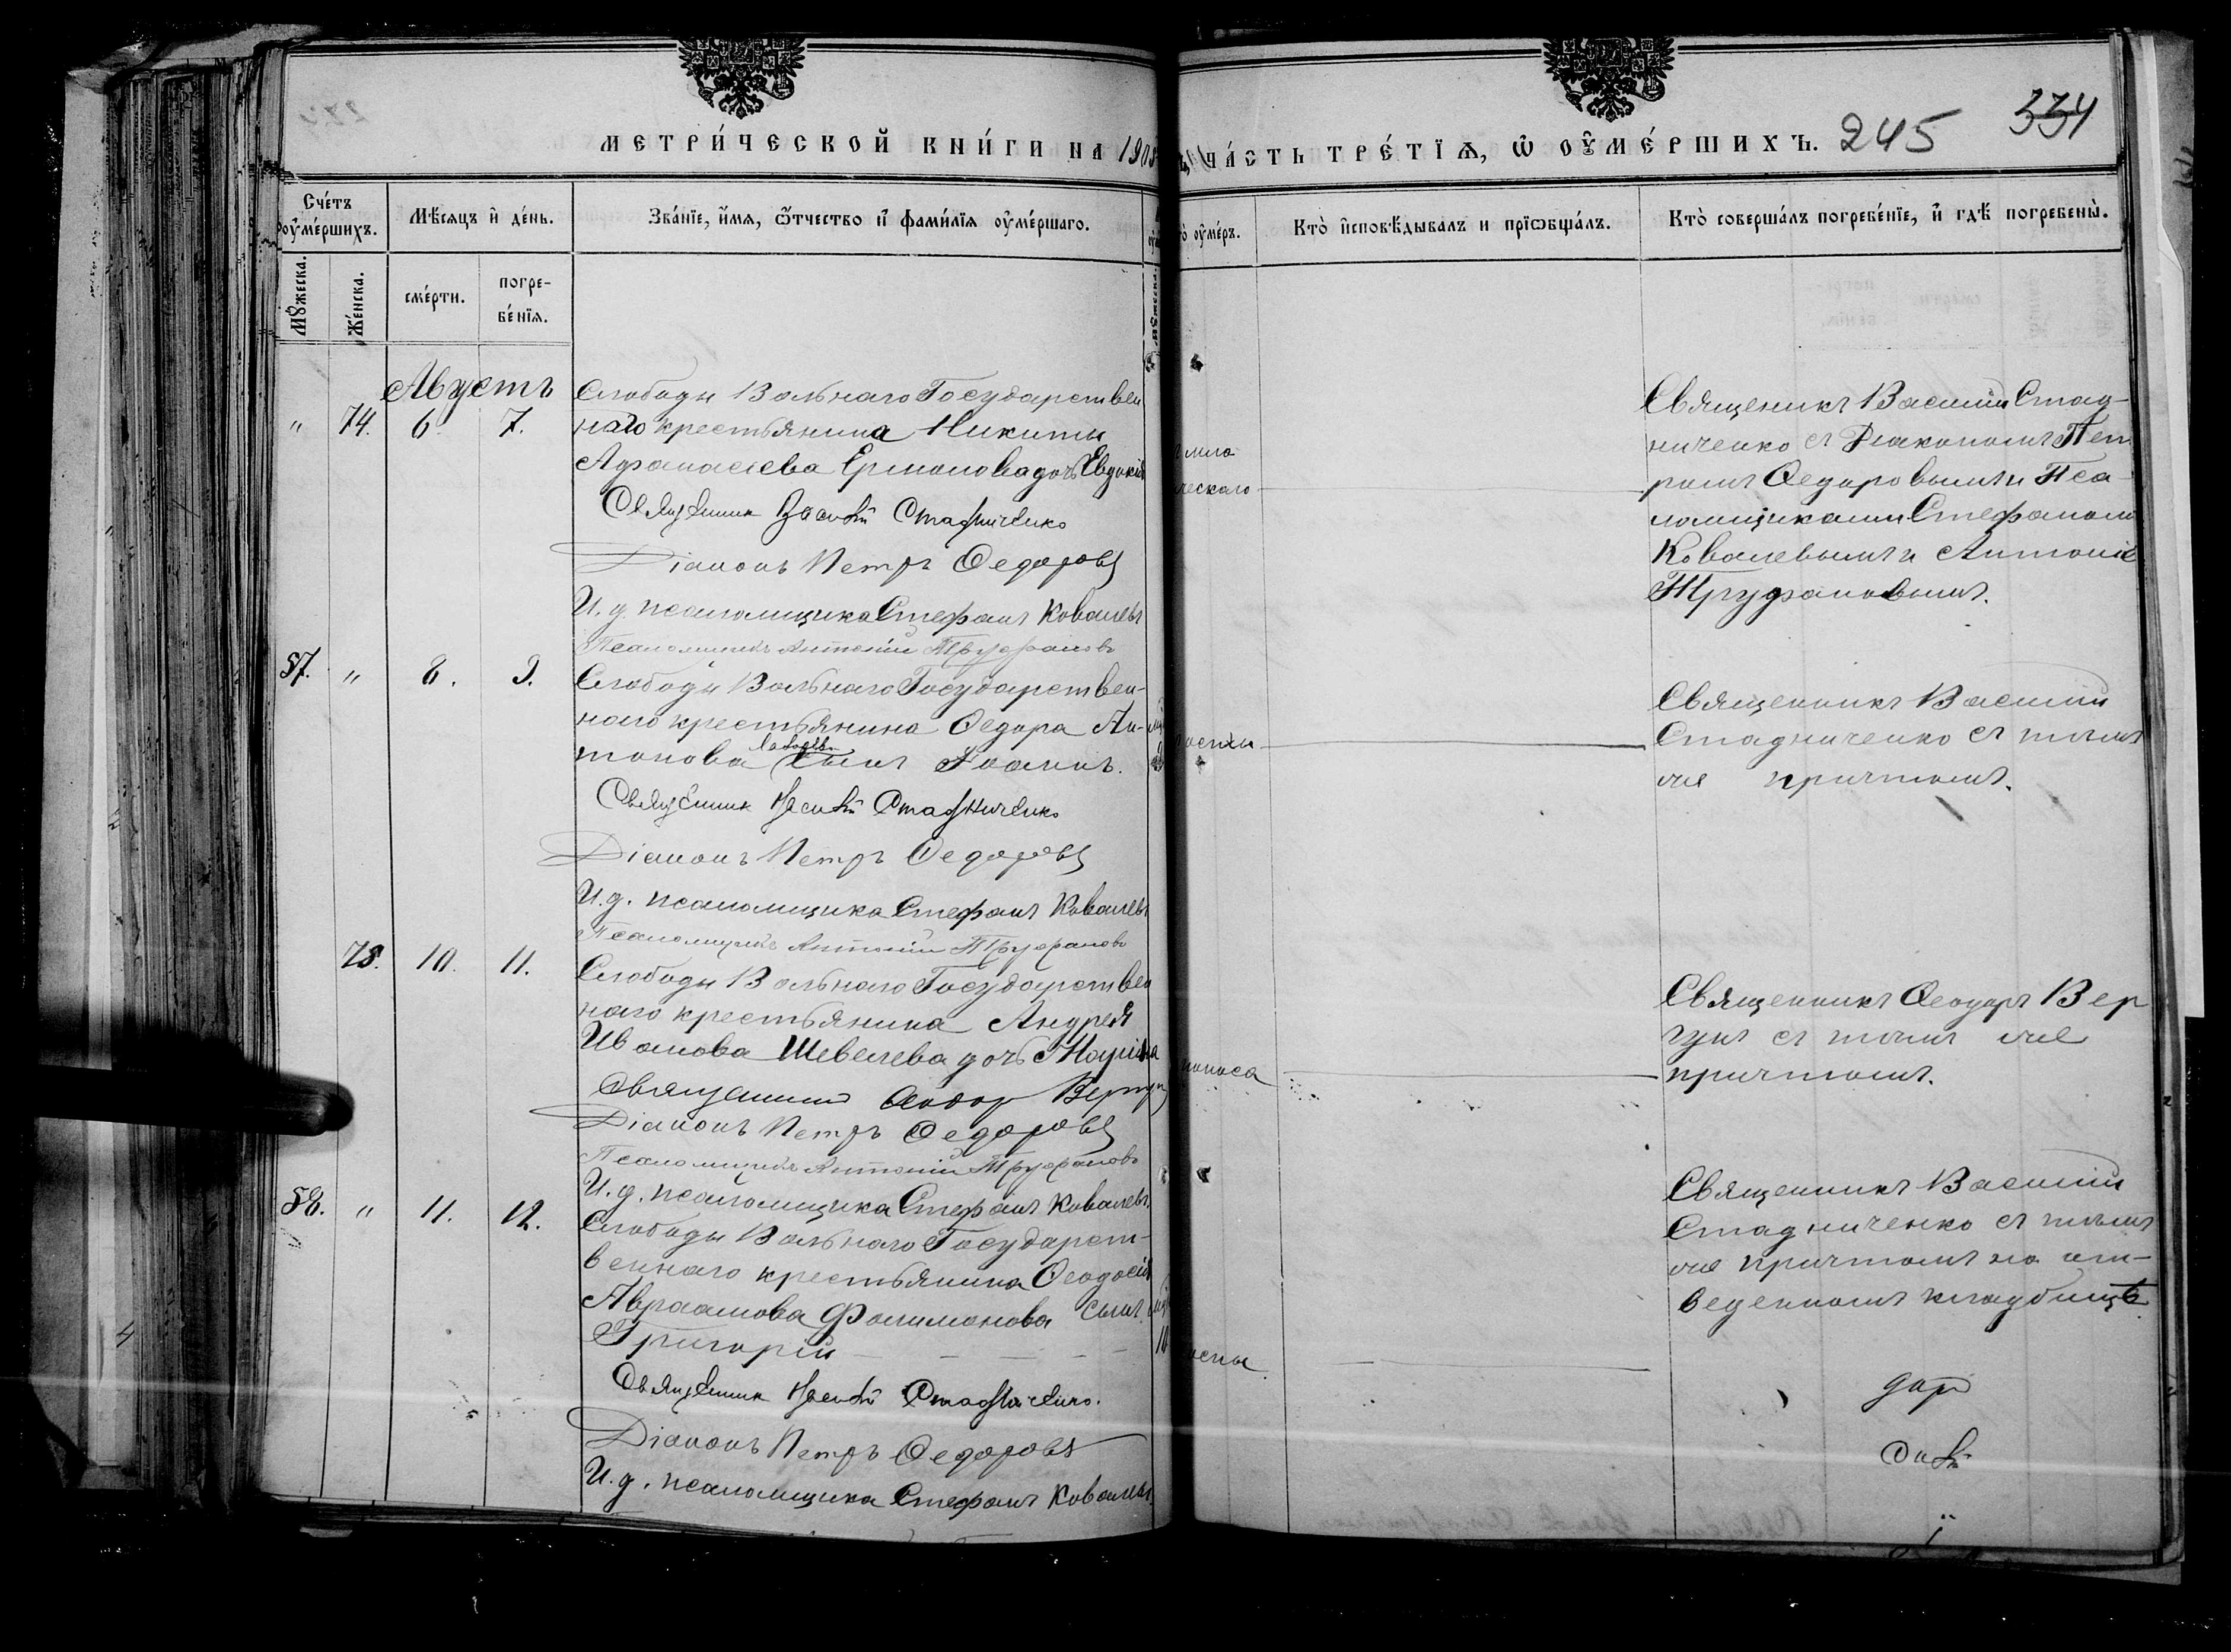 МЕТРИ́ЧЕСКОЙ КНИ́ГИ НА 190
ЧА́СТЬ ТРЕ́ТІѦ, Ѡ ОУ҆МЕ́РШИХЪ. 245 334
Сче́тъ оу҆ме́ршихъ.
Мѣ́сяцъ и҆ де́нь.
Зва́нїе, и҆́мя, ѻ҆́тчество и҆ фами́лїя оу҆ме́ршаго.
оу҆ме́ръ.
Кто̀ и҆сповѣ́дывалъ и прїѡбща́лъ.
Кто̀ соверша́лъ погребе́нїе, и҆ гдѣ̀ погребены̀.
Мꙋ́жеска.
Же́нска.
сме́рти.
погре-
бе́нїя.
Августъ
" 74. 6. 7.
Слободы Вольнаго Государствен
наго крестьянина Никиты
Афанасіева Ермолова дочь Евдокія
Священник Василій Стадниченко
Діаконъ Петръ Ѳедоровъ
И. д. псаломщика Стефанъ Ковалевъ
Псаломщикъ Антоній Труфановъ
ческаго
Священикъ Василій Стад-
ниченко съ Діакономъ Пет
ромъ Ѳедоровымъ и Пса-
ломщиками Стефаномъ
Ковалевымъ и Антоніе
Труфановымъ.
57. " 8. 9.
Слободы Вольнаго Государствен-
наго крестьянина Ѳедора Ан-
тонова сынъ Іоаннъ.
Священник Василій Стадниченко
Діаконъ Петръ Ѳедоровъ
И. д. псаломщика Стефанъ Ковалевъ
Псаломщикъ Антоній Труфановъ
Священникъ Василій
Стадниченко съ тѣмъ
же причтомъ.
75. 10. 11.
Слободы Вольнаго Государствен
наго крестьянина Андрея
Иванова Шевелева дочь Марина
Священникъ Ѳеодор Вергун
Діаконъ Петръ Ѳедоровъ
Псаломщикъ Антоній Труфановъ
И. д. псаломщика Стефанъ Ковалевъ
поноса
Священникъ Ѳеодоръ Вер
гунъ съ тѣмъ же
причтомъ.
58. " 11. 12.
Слободы Вольнаго Государст-
веннаго крестьянина Ѳеодосія
Авраамова Филимонова сынъ
Григорій
Священник Василій Стадниченко.
Діаконъ Петръ Ѳедоровъ
И. д. псаломщика Стефанъ Ковалевъ
оспы
Священникъ Василій
Стадниченко съ тѣмъ
же причтомъ на от-
веденномъ кладбищѣ